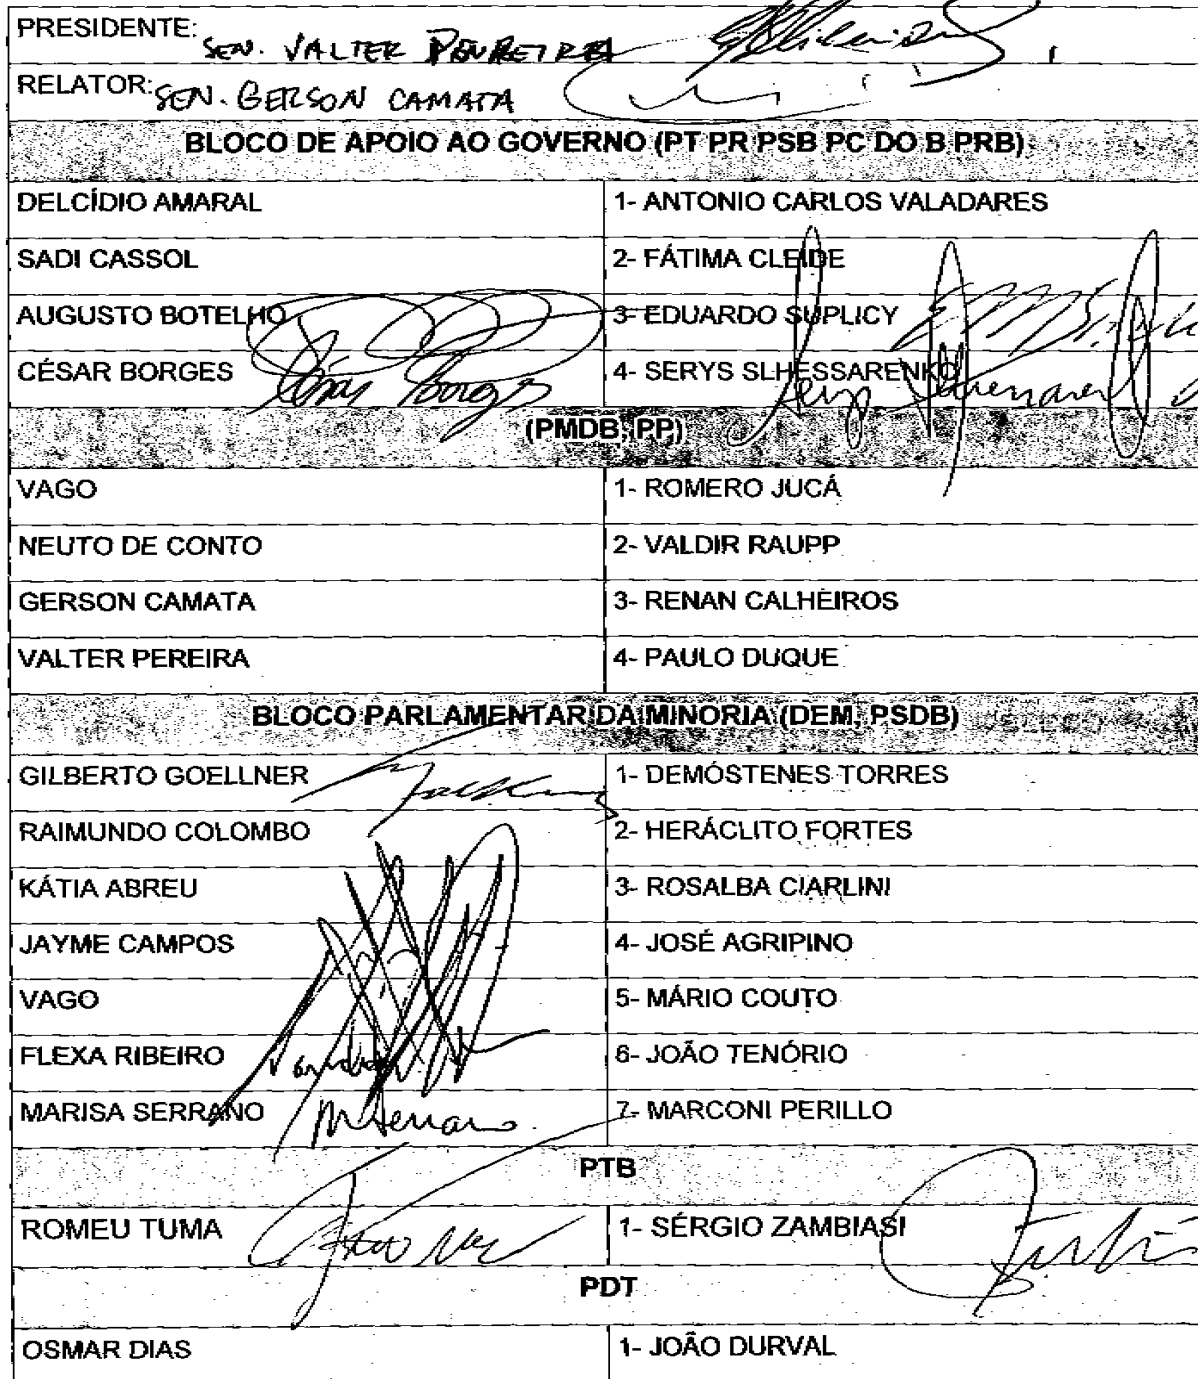 PRESIDENTE: SEN. VALTER PEREIRA
RELATOR: SEN. GERSON CAMATA
BLOCO DE APOIO AO GOVERNO (PT PR PSB PC DO B PRB)
DELCÍDIO AMARAL 1- ANTONIO CARLOS VALADARES
SADI CASSOL 2- FÁTIMA CLEIDE
AUGUSTO BOTELHO 3- EDUARDO SUPLICY
CÉSAR BORGES César Borges 4- SERYS SLHESSARENKO Serys Slhessarenko
(PMDB, PP)
VAGO 1- ROMERO JUCÁ
NEUTO DE CONTO 2- VALDIR RAUPP
GERSON CAMATA 3- RENAN CALHEIROS
VALTER PEREIRA 4- PAULO DUQUE
BLOCO PARLAMENTAR DA MINORIA (DEM, PSDB)
GILBERTO GOELLNER 1- DEMÓSTENES TORRES
RAIMUNDO COLOMBO 2- HERÁCLITO FORTES
KÁTIA ABREU 3- ROSALBA CIARLINI
JAYME CAMPOS 4- JOSÉ AGRIPINO
VAGO 5- MÁRIO COUTO
FLEXA RIBEIRO 6- JOÃO TENÓRIO
MARISA SERRANO MSerrano 7- MARCONI PERILLO
PTB
ROMEU TUMA 1- SÉRGIO ZAMBIASI
PDT
OSMAR DIAS 1- JOÃO DURVAL